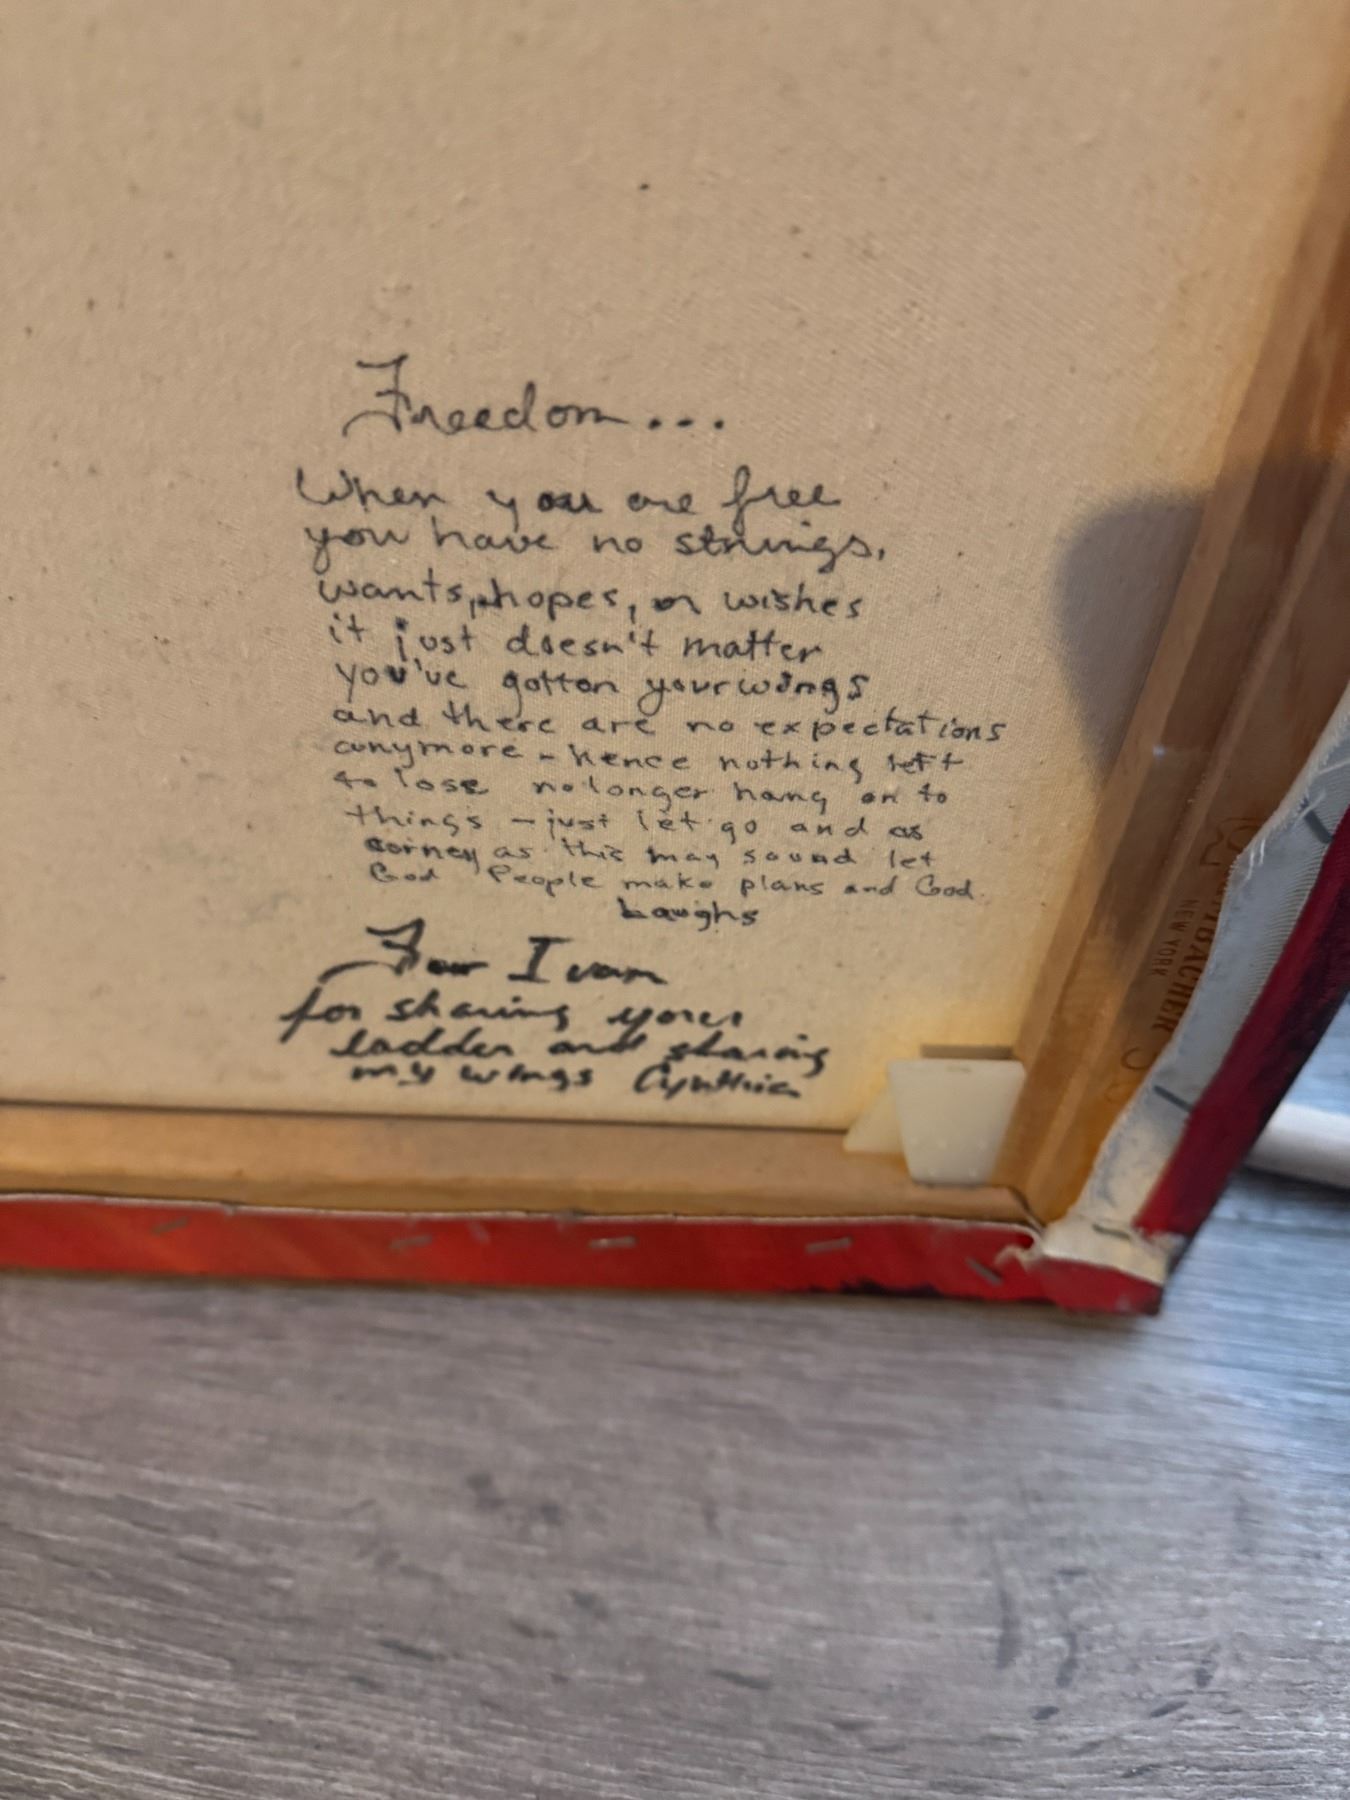 Freedom...
When you are free
you have no strings,
wants, hopes, or wishes
it just doesn't matter
you've gotton your wings
and there are no expectations
anymore - hence nothing left
to lose no longer hang on to
things - just let go and as
corney as this may sound let
God People make plans and God
Laughs
For Ivan
for sharing your
ladder and sharing
my wings Cynthia
NEW YORK